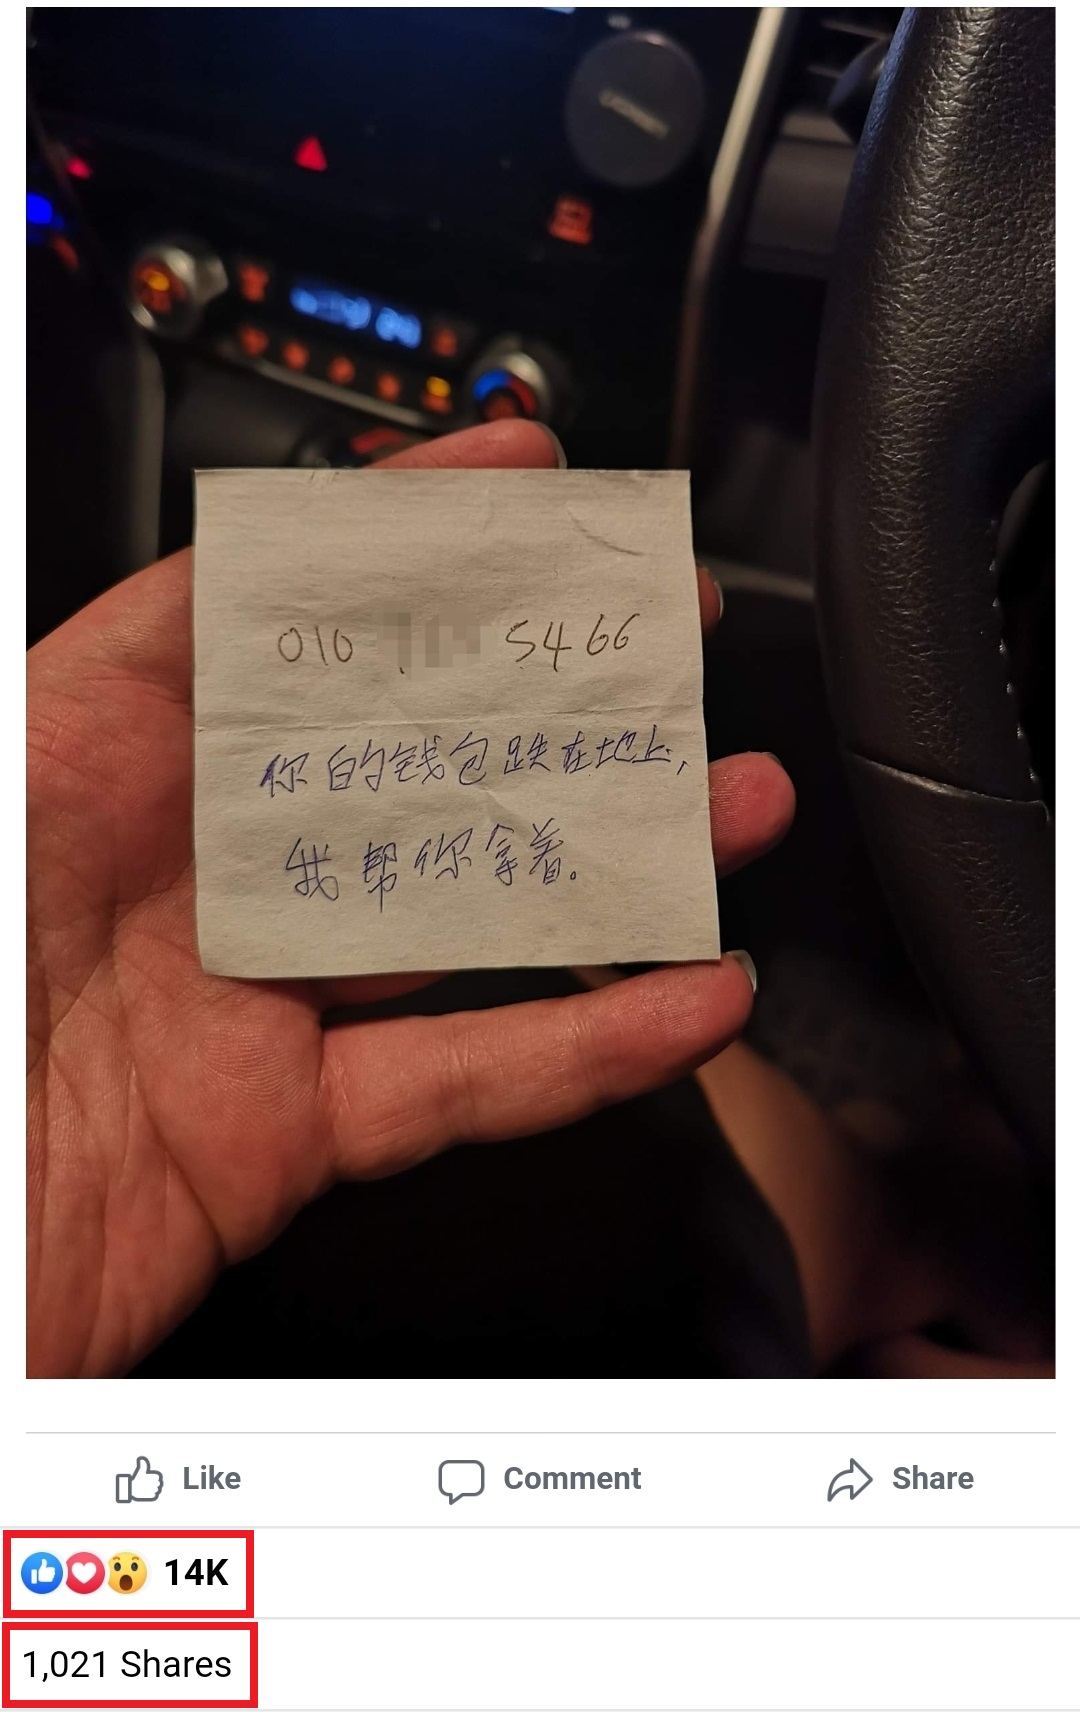 010 5466
你的钱包跌在地上,
我帮你拿着。
Like Comment Share
14K
1,021 Shares